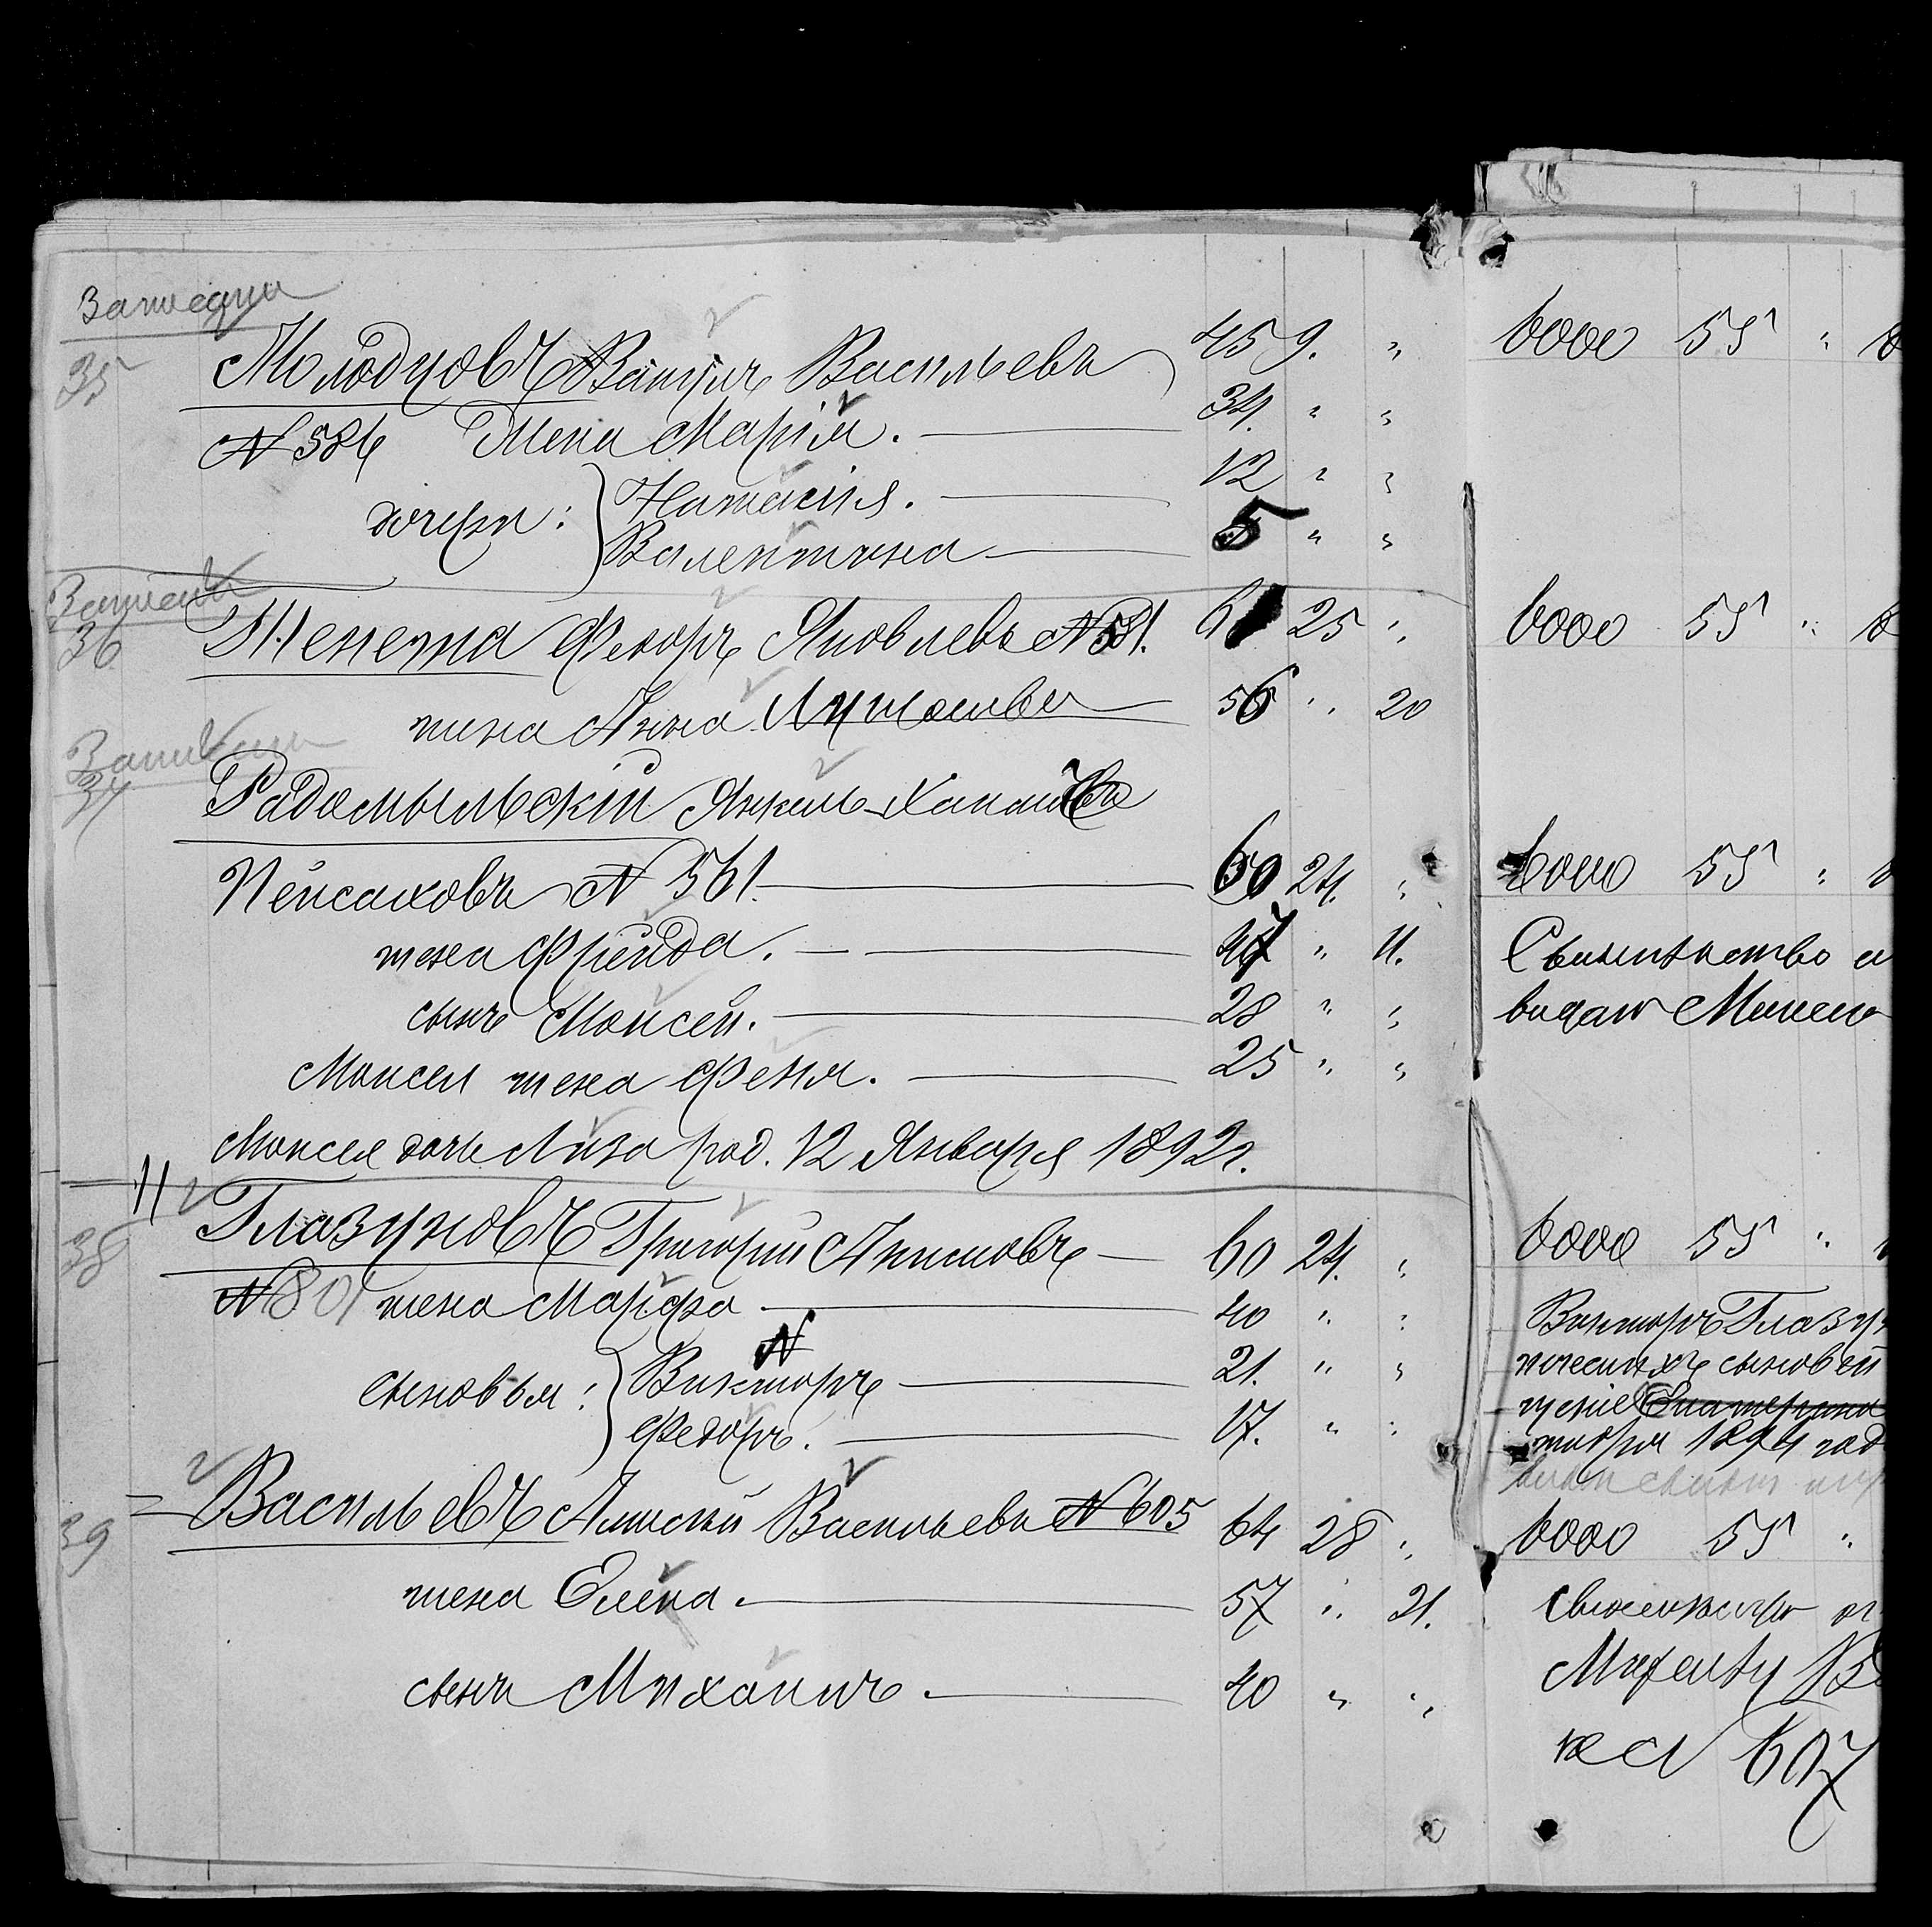 35 Молодцовъ Васильевъ 45 9. "
№ 586 Жена Марія. 34 " "
дочери: Наталія. 12 " "
Валентина 5 " "
36 Федоръ Яковлевъ № 581. 61 25 "
жена Анна 56 " 20
37
Радомысльскій Янкель-Хаимъ
Пейсаховъ № 561. 60 24. "
жена Фрейда. 47 " 11.
сынъ Моисей. 28 " "
Моисея жена Феня. 25 " "
Моисея дочь Лиза род. 12 Января 1892г.
38 Глазуновъ Григорій Анисимовъ 60 24. "
№ 801 жена Марфа 40 " "
N
сыновья: Викторъ 21. " "
Федоръ. 17. " "
39 Васильевъ Алексѣй Васильевъ № 605 64 28 "
жена Елена. 57 " 21.
сынъ Михаилъ. 40 " "
6000 55 "
6000 55 "
6000 55 "
видѣтельство
выдан
6000 55 "
Викторъ Глазун
сыновей
1894 год
6000 55 "
на 607